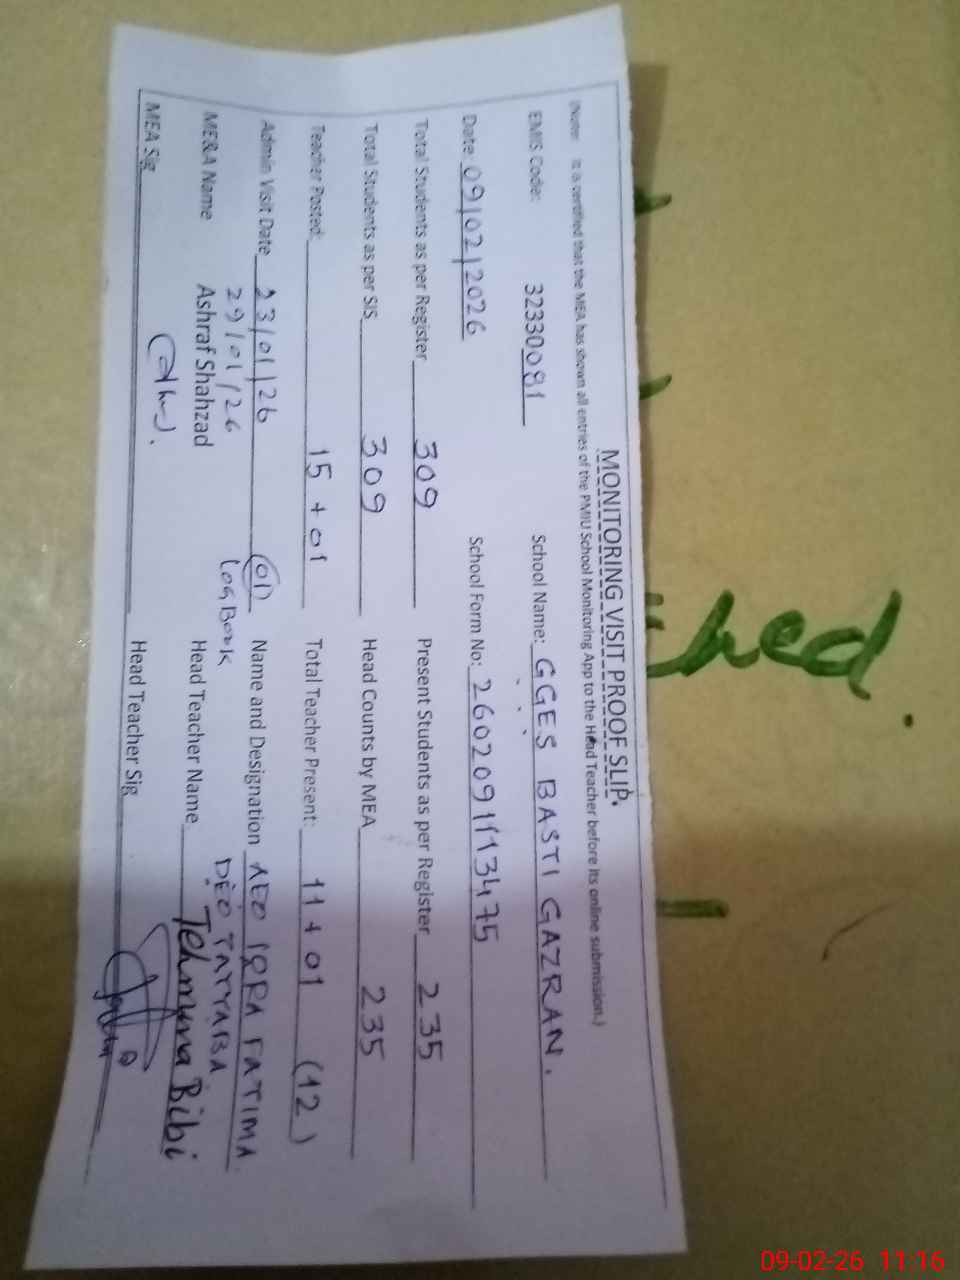 MONITORING VISIT PROOF SLIP.
(Note: It is certified that the MEA has shown all entries of the PMIU School Monitoring App to the Head Teacher before its online submission.)
EMIS Code: 32330081 School Name: GGES BASTI GAZRAN.
Date: 09/02/2026 School Form No: 2602091113475
Total Students as per Register 309 Present Students as per Register 235
Total Students as per SIS 309 Head Counts by MEA 235
Teacher Posted: 15 + 01 Total Teacher Present: 11 + 01 (12)
Admin Visit Date 23/01/26 01 Name and Designation AEO IQRA FATIMA
29/01/26 LOGBOOK DEO TAYYABA
ME&A Name Ashraf Shahzad Head Teacher Name Tehmina Bibi
MEA Sig Head Teacher Sig
hed.
09-02-26 11:16